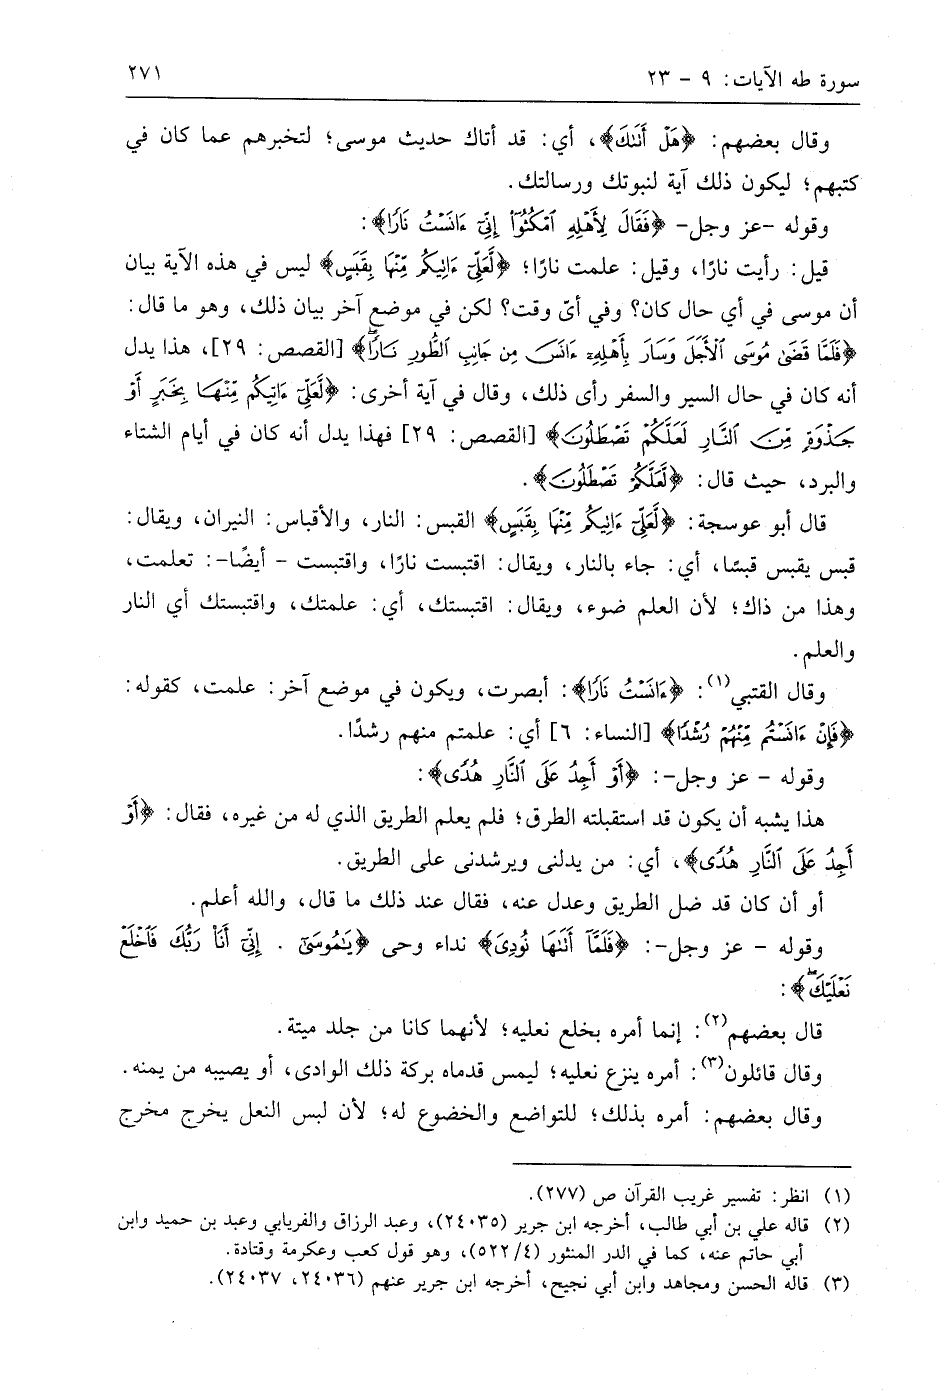 سورة طه الآيات: ٩ - ٢٣ ٢٧١
وقال بعضهم: ﴿هَلْ أَتَىٰكَ﴾، أي: قد أتاك حديث موسى؛ لتخبرهم عما كان في
كتبهم؛ ليكون ذلك آية لنبوتك ورسالتك.
وقوله -عز وجل- ﴿فَقَالَ لِأَهْلِهِ ٱمْكُثُوٓا۟ إِنِّىٓ ءَانَسْتُ نَارًا﴾:
قيل: رأيت نارًا، وقيل: علمت نارًا؛ ﴿لَّعَلِّىٓ ءَاتِيكُم مِّنْهَا بِقَبَسٍ﴾ ليس في هذه الآية بيان
أن موسى في أي حال كان؟ وفي أىّ وقت؟ لكن في موضع آخر بيان ذلك، وهو ما قال:
﴿فَلَمَّا قَضَىٰ مُوسَى ٱلْأَجَلَ وَسَارَ بِأَهْلِهِۦٓ ءَانَسَ مِن جَانِبِ ٱلطُّورِ نَارًاۖ﴾ [القصص: ٢٩]، هذا يدل
أنه كان في حال السير والسفر رأى ذلك، وقال في آية أخرى: ﴿لَّعَلِّىٓ ءَاتِيكُم مِّنْهَا بِخَبَرٍ أَوْ
جَذْوَةٍ مِّنَ ٱلنَّارِ لَعَلَّكُمْ تَصْطَلُونَ﴾ [القصص: ٢٩] فهذا يدل أنه كان في أيام الشتاء
والبرد، حيث قال: ﴿لَعَلَّكُمْ تَصْطَلُونَ﴾.
قال أبو عوسجة: ﴿لَّعَلِّىٓ ءَاتِيكُم مِّنْهَا بِقَبَسٍ﴾ القبس: النار، والأقباس: النيران، ويقال:
قبس يقبس قبسًا، أي: جاء بالنار، ويقال: اقتبست نارًا، واقتبست - أيضًا-: تعلمت،
وهذا من ذاك؛ لأن العلم ضوء، ويقال: اقتبستك، أي: علمتك، واقتبستك أي النار
والعلم.
وقال القتبي(١): ﴿ءَانَسْتُ نَارًا﴾: أبصرت، ويكون في موضع آخر: علمت، كقوله:
﴿فَإِنْ ءَانَسْتُم مِّنْهُمْ رُشْدًا﴾ [النساء: ٦] أي: علمتم منهم رشدًا.
وقوله - عز وجل-: ﴿أَوْ أَجِدُ عَلَى ٱلنَّارِ هُدًى﴾:
هذا يشبه أن يكون قد استقبلته الطرق؛ فلم يعلم الطريق الذي له من غيره، فقال: ﴿أَوْ
أَجِدُ عَلَى ٱلنَّارِ هُدًى﴾، أي: من يدلنى ويرشدنى على الطريق.
أو أن كان قد ضل الطريق وعدل عنه، فقال عند ذلك ما قال، والله أعلم.
وقوله - عز وجل-: ﴿فَلَمَّآ أَتَىٰهَا نُودِىَ﴾ نداء وحى ﴿يَٰمُوسَىٰٓ . إِنِّىٓ أَنَا۠ رَبُّكَ فَٱخْلَعْ
نَعْلَيْكَۖ﴾:
قال بعضهم(٢): إنما أمره بخلع نعليه؛ لأنهما كانا من جلد ميتة.
وقال قائلون(٣): أمره ينزع نعليه؛ ليمس قدماه بركة ذلك الوادى، أو يصيبه من يمنه.
وقال بعضهم: أمره بذلك؛ للتواضع والخضوع له؛ لأن لبس النعل يخرج مخرج
(١) انظر: تفسير غريب القرآن ص (٢٧٧).
(٢) قاله علي بن أبي طالب، أخرجه ابن جرير (٢٤٠٣٥)، وعبد الرزاق والفريابي وعبد بن حميد وابن
أبي حاتم عنه، كما في الدر المنثور (٥٢٢/٤)، وهو قول كعب وعكرمة وقتادة.
(٣) قاله الحسن ومجاهد وابن أبي نجيح، أخرجه ابن جرير عنهم (٢٤٠٣٦، ٢٤٠٣٧).